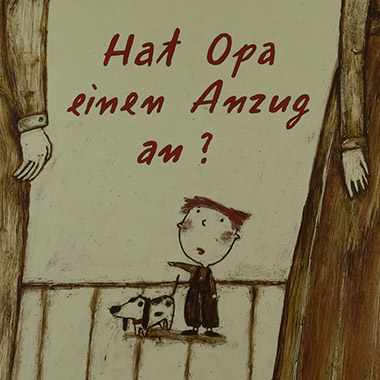 Hat Opa
einen Anzug
an?